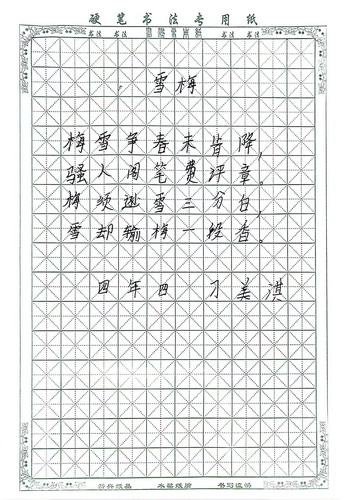 硬笔书法专用纸
书法 书法 书法 书法
雪梅
梅雪争春未肯降，
骚人阁笔费评章。
梅须逊雪三分白，
雪却输梅一段香。
四年四 刁美淇